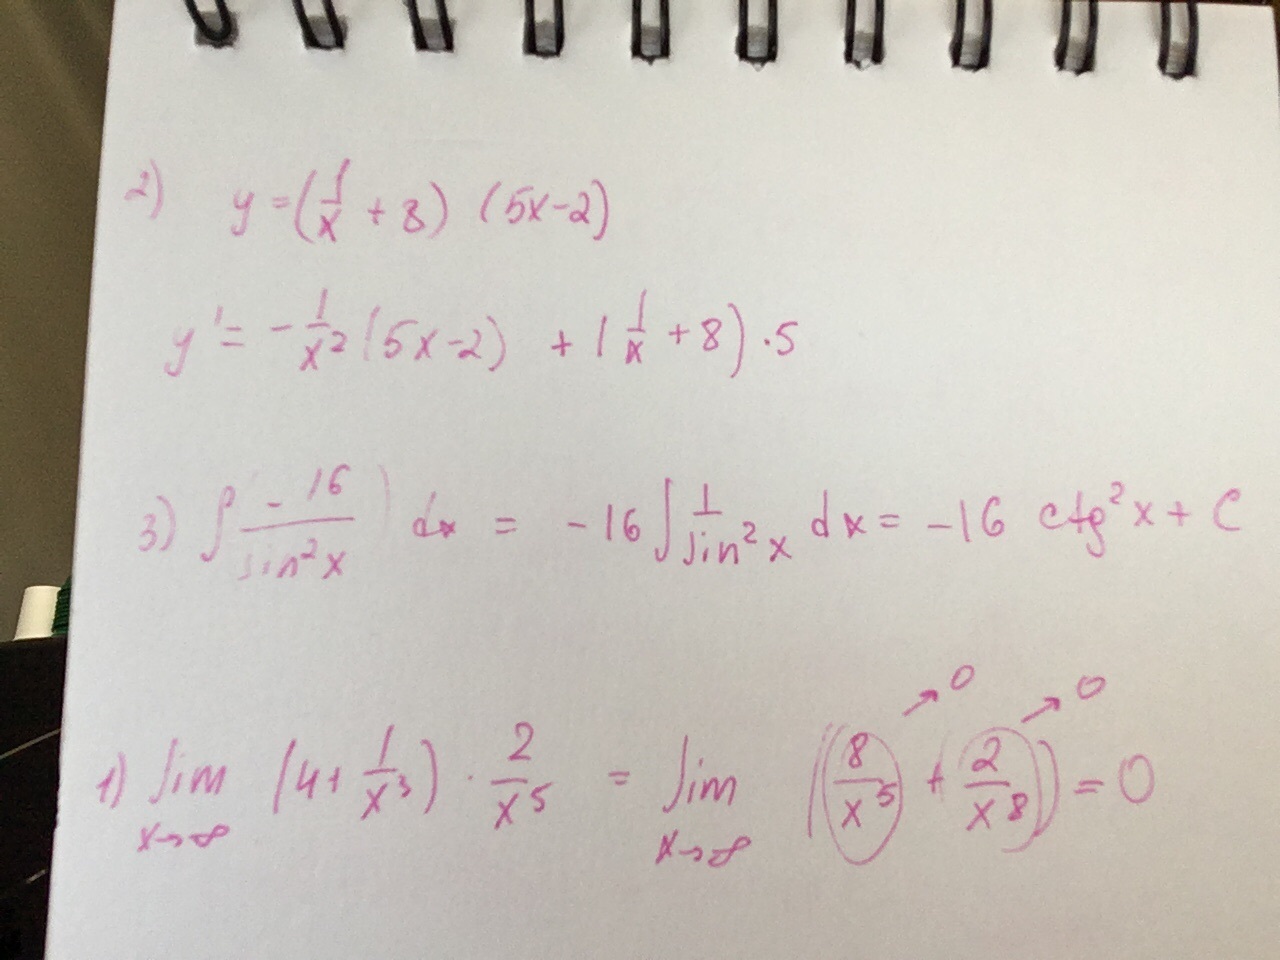 2) y = (1/x + 8) (5x-2)
y' = - 1/x² (5x-2) + (1/x + 8) · 5
3) ∫ (-16/sin²x) dx = -16 ∫ 1/sin²x dx = -16 ctg²x + C
→ 0 → 0
1) lim x→∞ (4 + 1/x³) · 2/x⁵ = lim x→∞ (8/x⁵ + 2/x⁸) = 0